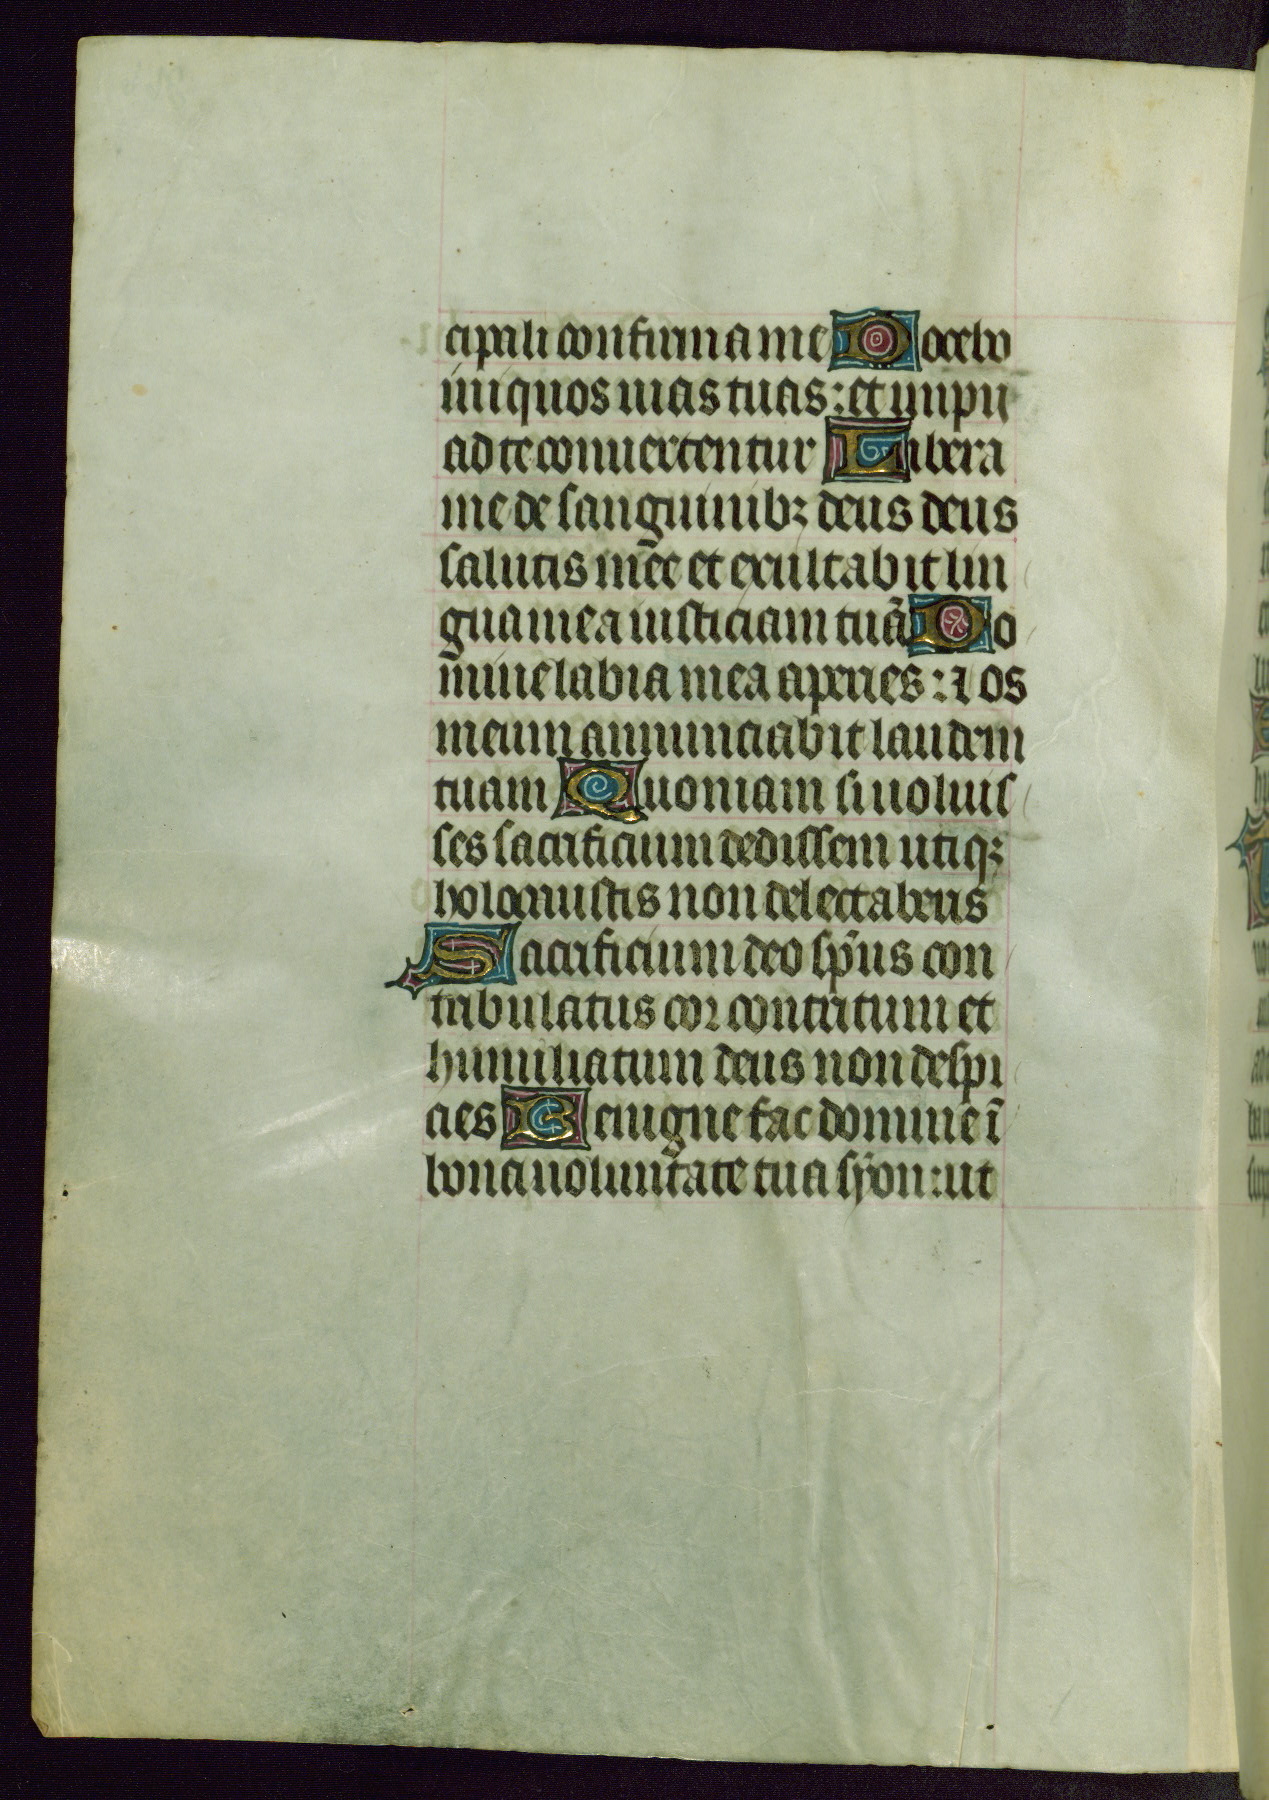 cipali confirma me Docebo
iniquos uias tuas : et impii
ad te conuertentur Libera
me de sanguinibꝫ deus deus
salutis mee et exultabit lin
gua mea iusticiam tuā Do
mine labia mea aperies : ⁊ os
meum annunciabit laudem
tuam Quoniam si uoluis
ses sacrificium dedissem utiqꝫ
holocaustis non delectaberis
Sacrificium deo sp̄us con
tribulatus cor contritum et
humiliatum deus non despi
cies Benigne fac domine ī
bona uoluntate tua syon : ut